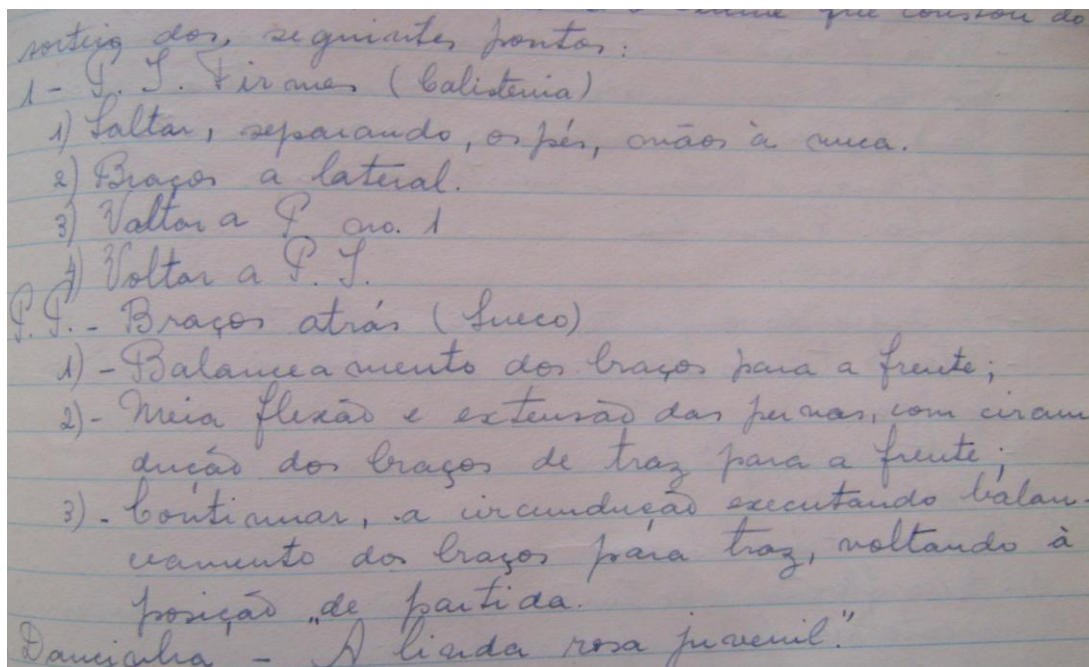 que constou do
sorteio dos, seguintes pontos:
1 - P. I. Firmes (Calistenia)
1) Saltar, separando, os pés, mãos à nuca.
2) Braços a lateral.
3) Valtar a P no. 1
4) Voltar a P. I.
P.P. - Braços atrás (Sueco)
1) - Balanceamento dos braços para a frente;
2) - Meia flexão e extensão das pernas, com circun
dução dos braços de traz para a frente;
3) - Continuar, a circundução executando balan
ceamento dos braços para traz, voltando à
posição de partida.
Dancinha - "A linda rosa juvenil."